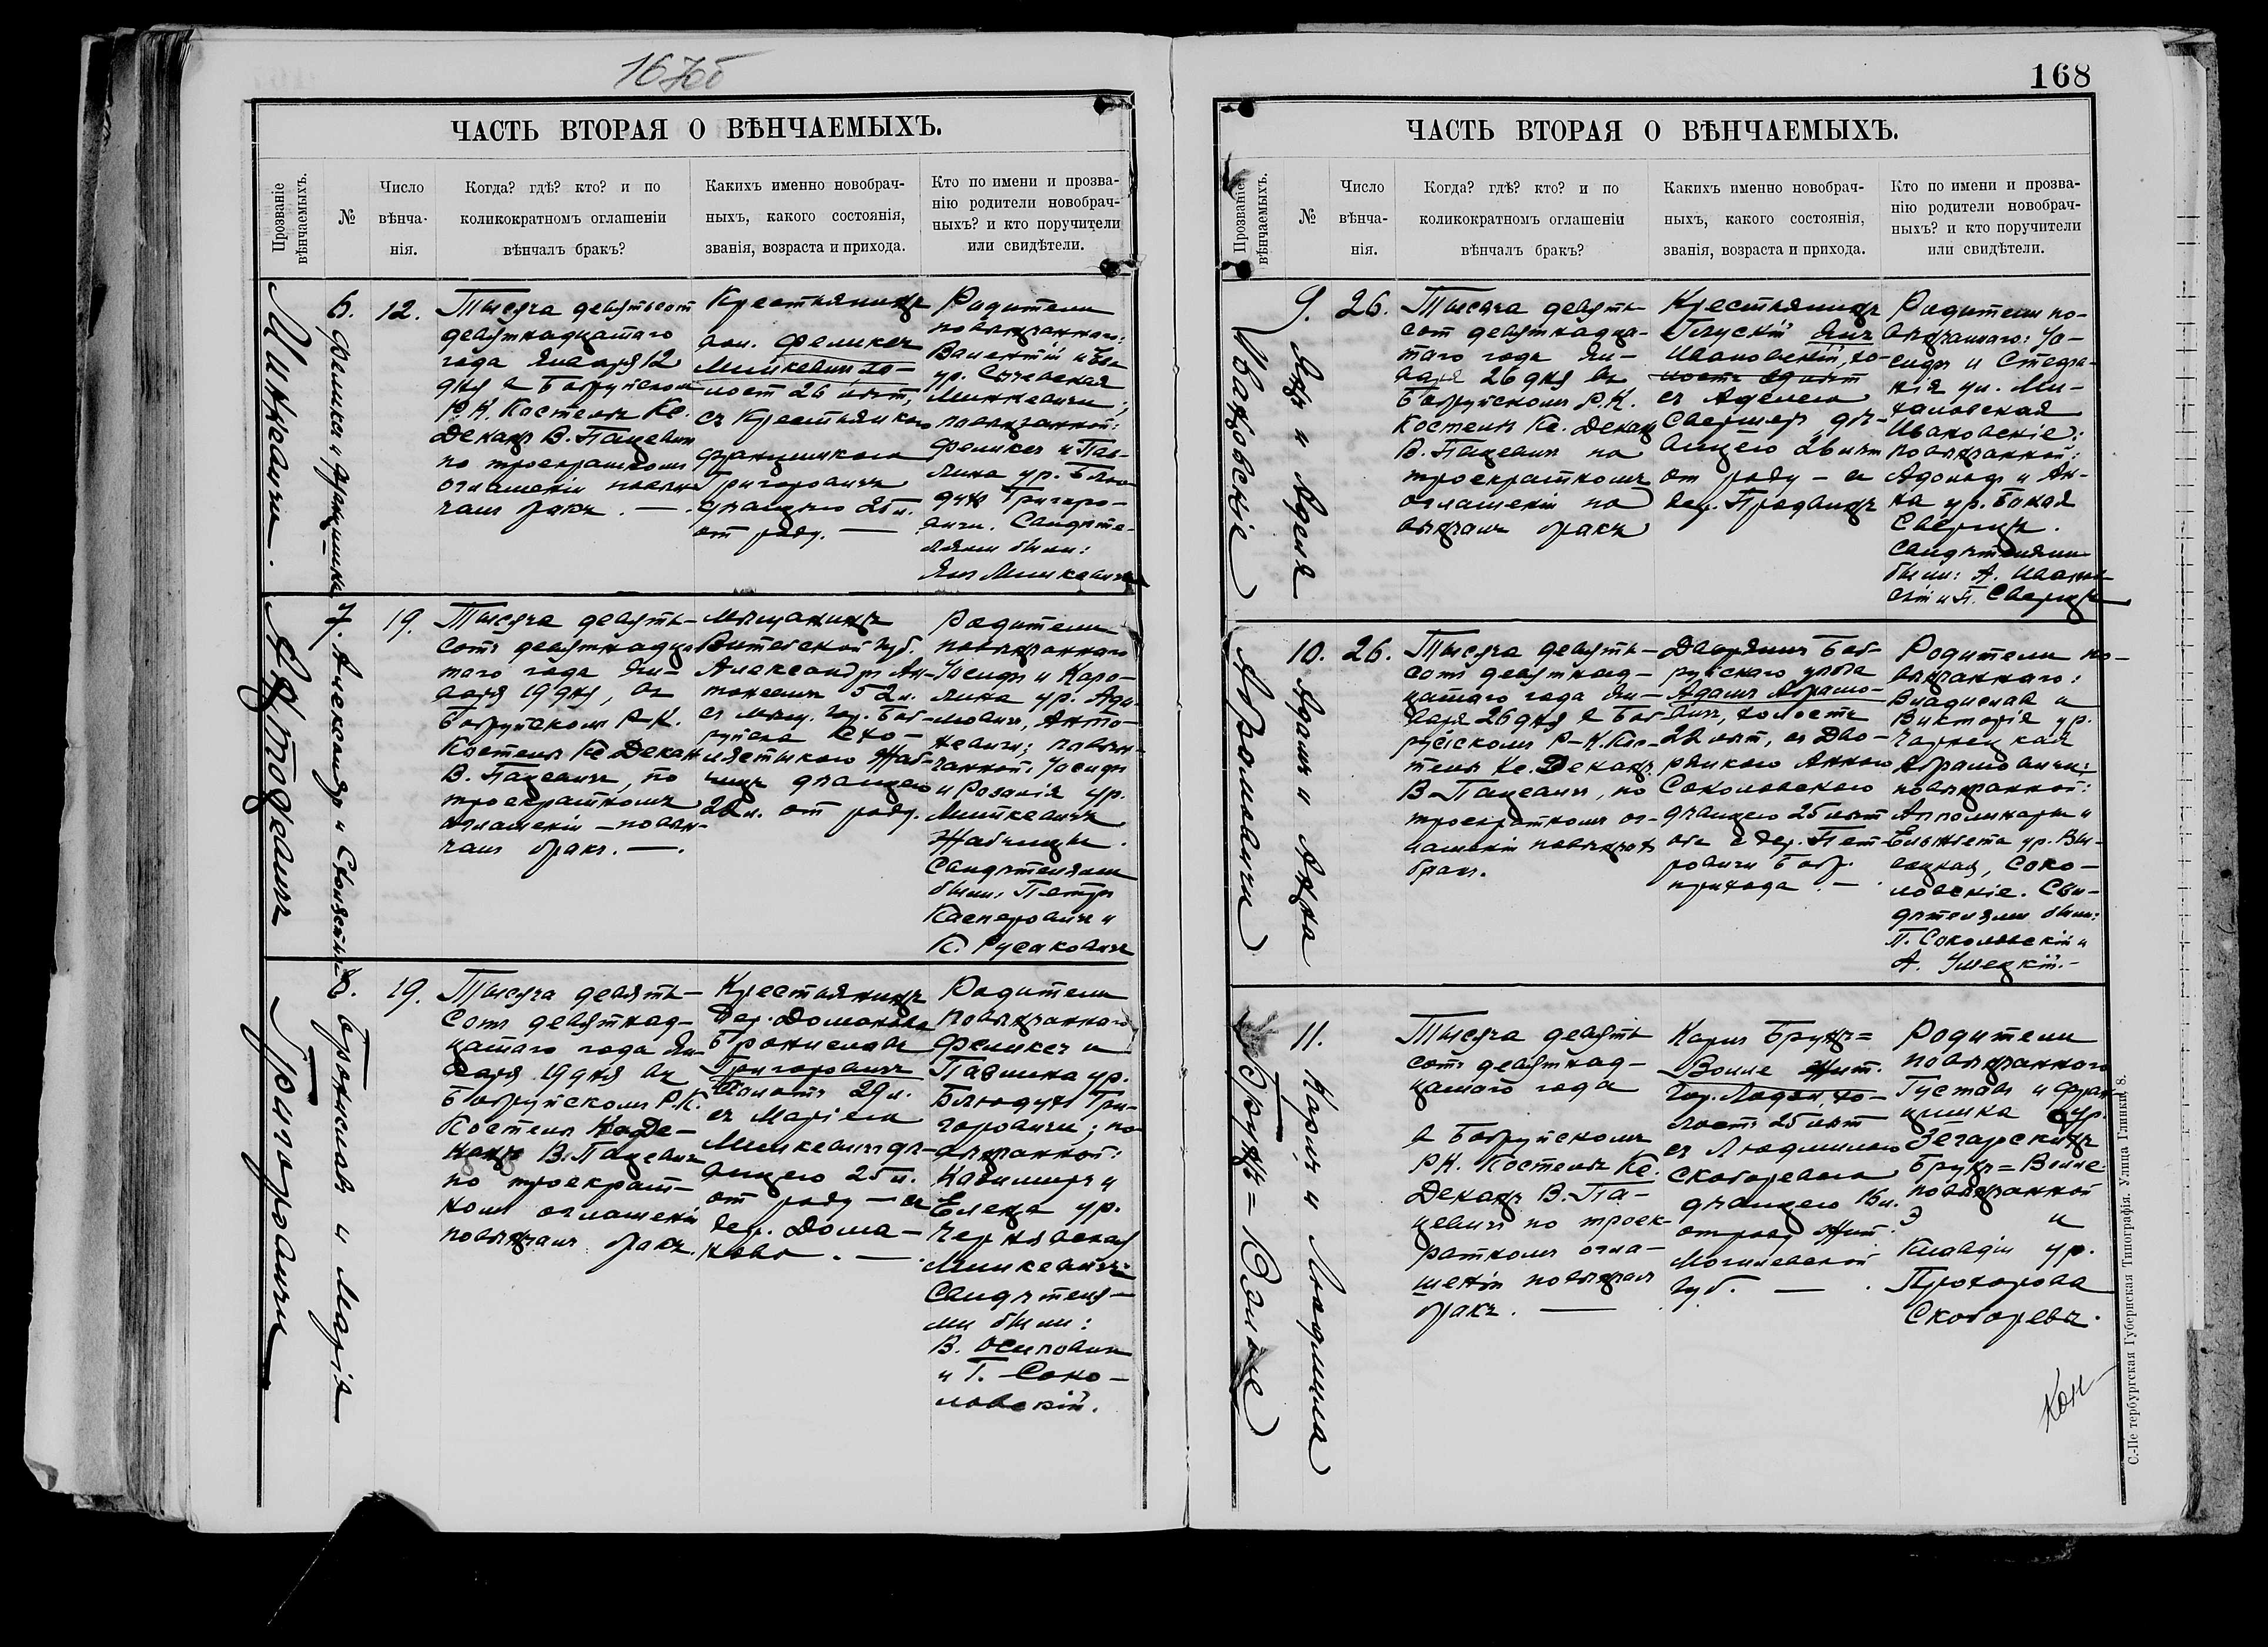 167об
ЧАСТЬ ВТОРАЯ О ВѢНЧАЕМЫХЪ.
Прозваніе вѣнчаемыхъ.
№
Число вѣнча-нія.
Когда? гдѣ? кто? и по
коликократномъ оглашеніи
вѣнчалъ бракъ?
Какихъ именно новобрач-
ныхъ, какого состоянія,
званія, возраста и прихода.
Кто по имени и прозва-
нію родители новобрач-
ныхъ? и кто поручители
или свидѣтели.
Минкевичи.
6. Феликсъ и Францишка
12.
Тысяча девятьсот
девятнадцатаго
года Января 12
дня в Бобруйском
Р. К. Костелѣ Кс.
Декан В. Пацевич
по троекратном
оглашеніи повѣн-
чал бракъ. —
Крестьянинъ
Феликсъ
Минкевич, хо-
лост 26 лѣт,
съ Крестьянкою
Францишкою
Григоровичъ
дѣвицею 25 л.
от роду. —
Родители
повѣнчаннаго:
Валентій и Ева
ур. Сычевская
Минкевичи;
повѣнчанной:
Феликсъ и Пав-
лина ур. Блю-
духо Григоро-
вичи. Свидѣте-
лями были:
Янъ Минкевичъ
Антоневичъ
7. Александръ и Стоислава
19.
Тысяча девять-
сотъ девятнадца
таго года Ян-
варя 19 дня, въ
Бобруйском Р-К.
Костелѣ Кс Декан
В. Пацевичъ, по
троекратномъ
оглашеніи — повѣн-
чал бракъ. —.
Мѣщанинъ
Витебской губ.
Александръ Ан-
тоневич 52 л.
съ мѣщ. гор. Боб-
руйска
Жаб-
чицъ дѣвицею
22 л. от роду.
Родители
повѣнчаннаго
Іосифъ и Каро-
лина ур. Ада-
мович, Анто-
невичи; повѣн-
чанной: Іосифъ
и Розалія ур.
Миткевичъ
Жабчицы.
Свидѣтелями
были: Петръ
Касперовичъ и
К. Русаковичъ
Григоровичи
8. Брониславъ и Марія
19.
Тысяча девять-
сот девятнад-
цатаго года Ян-
варя 19 дня въ
Бобруйском Р.К.
Костелѣ Кс Де-
канъ В. Пацевич
по троекрат-
ном оглашеніи
повѣнчалъ бракъ.
Крестьянинъ
дер. Доманова
Брониславъ
Григоровичъ
холостъ 29 л.
съ Маріею
Минкевич дѣ-
вицею 25 л.
от роду — съ
дер. Дома-
ново. —.
Родители
повѣнчаннаго
Феликсъ и
Павлина ур.
Блюдухо Гри-
горовичи; по-
вѣнчанной:
Казимиръ и
Елена ур.
Чернявская
Минкевичъ.
Свидѣтеля-
ми были:
В. Осипович
и Г. Соко-
ловскій.
168
ЧАСТЬ ВТОРАЯ О ВѢНЧАЕМЫХЪ.
Прозваніе вѣнчаемыхъ.
№
Число вѣнча-нія.
Когда? гдѣ? кто? и по
коликократномъ оглашеніи
вѣнчалъ бракъ?
Какихъ именно новобрач-
ныхъ, какого состоянія,
званія, возраста и прихода.
Кто по имени и прозва-
нію родители новобрач-
ныхъ? и кто поручители
или свидѣтели.
Ивановскіе
9. Янъ и Аделя
26.
Тысяча девять-
сот девятнадца-
таго года Ян-
варя 26 дня въ
Бобруйском Р.К.
Костелѣ Кс. Декан
В. Пацевич по
троекратномъ
оглашеніи по
вѣнчал бракъ
Крестьянинъ
Глускій Янъ
Ивановскій, хо-
лостъ лѣт
съ Аделею
дѣ-
вицею 26 лѣт
от роду — съ
дер.
Родители по-
вѣнчаннаго: Іо-
сифъ и Стефа-
нія ур. Ми-
халовская
Ивановскіе:
повѣнчанной:
Адольф и Ан-
на ур.
Свидѣтелями
были: А. Иванов-
скій и П.
Абрамовичи
10. Адамъ и Анна
26.
Тысяча девять-
сот девятнад-
цатаго года Ян-
варя 26 дня в Боб-
руйском Р-К. Кос-
телѣ Кс. Деканъ
В. Пацевич, по
троекратном ог-
лашеніи повѣнчал
брак.
Дворянин Боб-
руйскаго уѣзда
Адамъ Абрамо-
вич, холостъ
22 лѣт, съ Дво-
рянкою Анною
Соколовскою
дѣвицею 25 лѣт
оба с дер. Пет-
ровичи Бобр.
прихода. —
Родители по-
вѣнчаннаго:
Владислав и
Викторія ур.
Чарнецкая
Абрамовичи;
повѣнчанной:
Апполинарій и
Ельжбета ур. Вы-
соцкая, Соко-
ловскіе. Сви-
дѣтелями были:
П. Соколовскій и
А. Умецкій. —
Брунъ=Вэлле
11. Карлъ и Людмила
Тысяча девять
сотъ девятнад-
цатаго года
в Бобруйскомъ
Р.К. Костелѣ Кс.
Деканъ В. Па-
цевич по троек-
ратномъ огла-
шеніи повѣнчал
бракъ. —
Карлъ Брунъ=
Вэлле Жит.
гор. Лодзи хо-
лостъ 25 лѣт
съ Людмилою
Скобаревою
дѣвицею 16 л.
от роду Жит.
Могилевской
губ. —.
Родители
повѣнчаннаго
Густав и Фран-
цишка ур.
Зегарскихъ
Брунъ=Вэлле
повѣнчанной
Э и
Клавдіи ур.
Прохорова
Скобаревъ.
Кон
С.-Пе тербургская Губернская Типографія. Улица Глинки, 8.